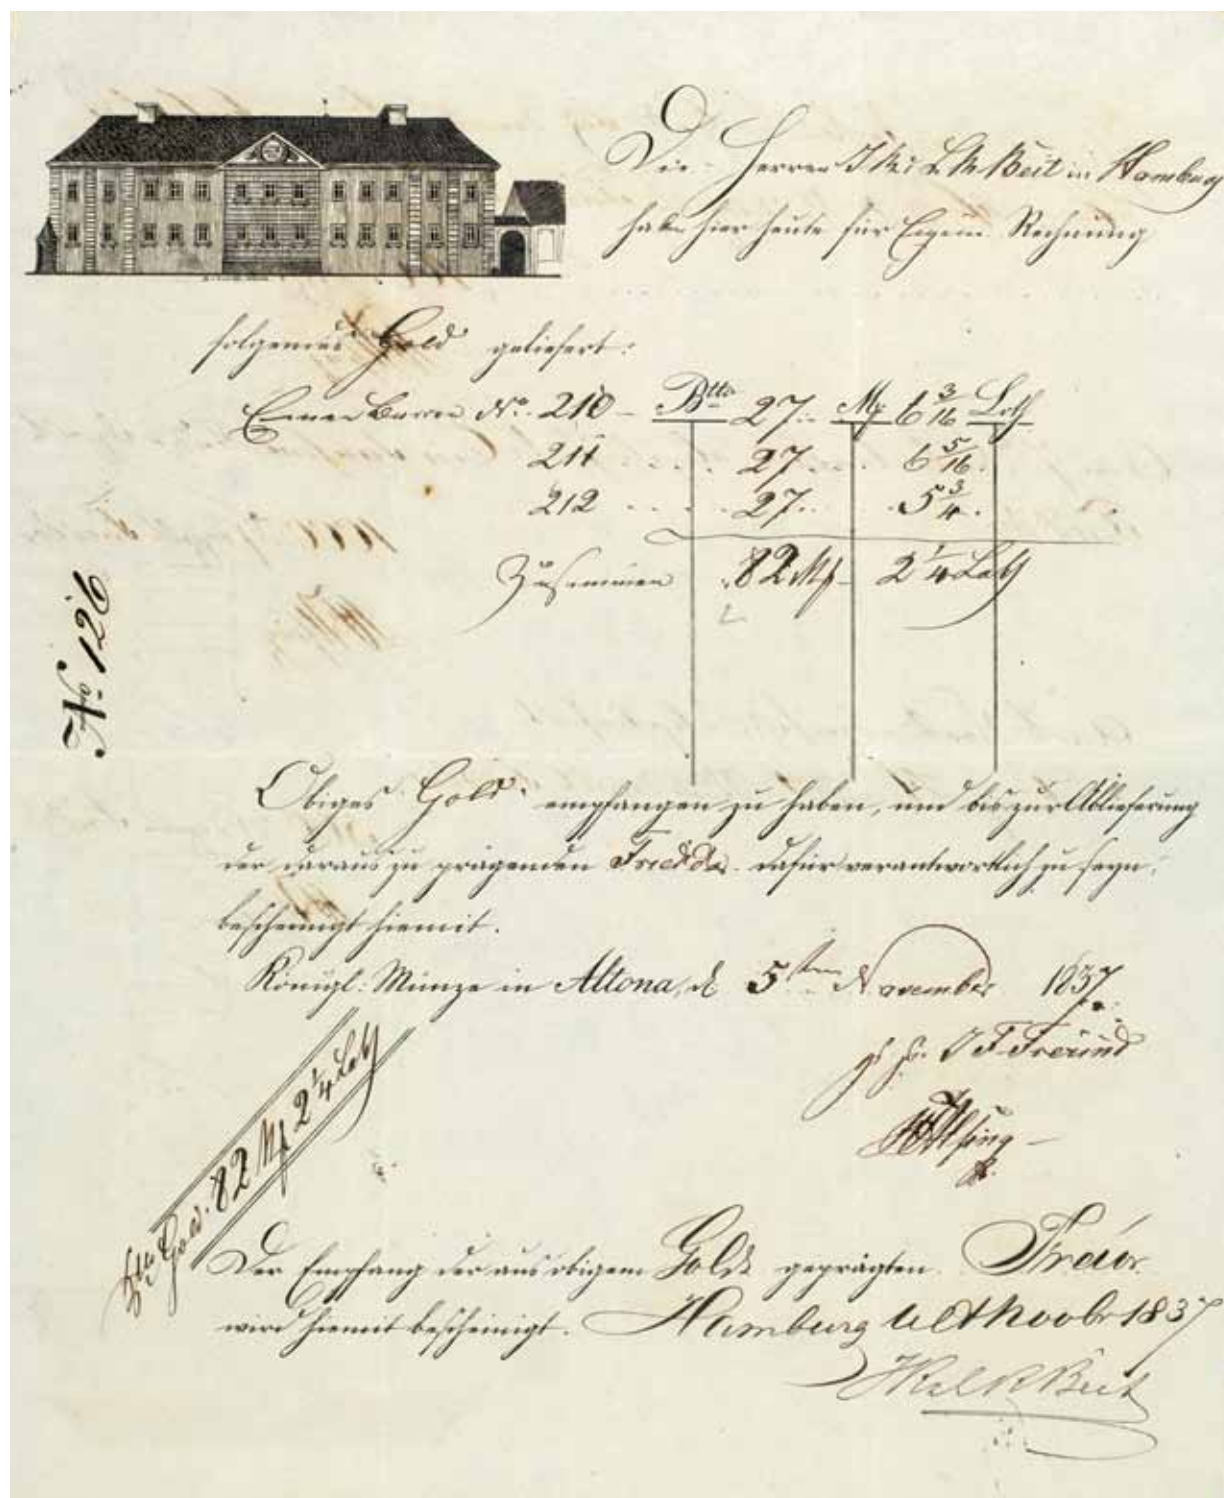 Die Herren & L R Beit in Hamburg
haben hier heute für Eigene Rechnung
folgendes Gold geliefert:
Einen Barren No. 210 – Btto 27.. Mk 6 3/16 Loth
211 . . . . 27 . . . 6 5/16.
212 . . . . 27.. . 5 3/4.
Zusammen 82 Mk 2 1/4 Loth
No. 126
Obiges Gold empfangen zu haben, und bis zur Ablieferung
der daraus zu prägenden dafür verantwortlich zu seyn,
bescheinigt hiemit.
Königl: Münze in Altona, d 5ten November 1837
J F Freund
Btto Gold. 82 Mk 2 1/4 Loth
Der Empfang der aus obigem Golde geprägten
wird hiemit bescheinigt. Hamburg 1837
R Beit